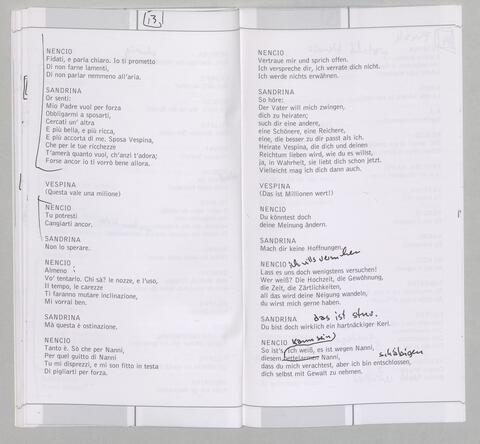 13
NENCIO
Fidati, e parla chiaro. Io ti prometto
Di non farne lamenti,
Di non parlar nemmeno all'aria.
SANDRINA
Or senti:
Mio Padre vuol per forza
Obbligarmi a sposarti,
Cercati un' altra
E più bella, e più ricca,
E più accorta di me. Sposa Vespina,
Che per le tue ricchezze
T'amerà quanto vuoi, ch'anzi t'adora;
Forse ancor io ti vorrò bene allora.
VESPINA
(Questa vale una milione)
NENCIO
Tu potresti
Cangiarti ancor.
SANDRINA
Non lo sperare.
NENCIO
Almeno
Vo' tentarlo. Chi sà? le nozze, e l'uso,
Il tempo, le carezze
Ti faranno mutare inclinazione,
Mi vorrai ben.
SANDRINA
Mà questa è ostinazione.
NENCIO
Tanto è. Sò che per Nanni,
Per quel guitto di Nanni
Tu mi disprezzi, e mi son fitto in testa
Di pigliarti per forza.
NENCIO
Vertraue mir und sprich offen.
Ich verspreche dir, ich verrate dich nicht.
Ich werde nichts erwähnen.
SANDRINA
So höre:
Der Vater will mich zwingen,
dich zu heiraten;
such dir eine andere,
eine Schönere, eine Reichere,
eine, die besser zu dir passt als ich.
Heirate Vespina, die dich und deinen
Reichtum lieben wird, wie du es willst,
ja, in Wahrheit, sie liebt dich schon jetzt.
Vielleicht mag ich dich dann auch.
VESPINA
(Das ist Millionen wert!)
NENCIO
Du könntest doch
deine Meinung ändern.
SANDRINA
Mach dir keine Hoffnungen.
NENCIO ich will's versuchen
Lass es uns doch wenigstens versuchen!
Wer weiß? Die Hochzeit, die Gewöhnung,
die Zeit, die Zärtlichkeiten,
all das wird deine Neigung wandeln,
du wirst mich gerne haben.
SANDRINA das ist stur.
Du bist doch wirklich ein hartnäckiger Kerl.
NENCIO kann sein
So ist's. Ich weiß, es ist wegen Nanni,
diesem bettelarmen Nanni, schäbigen
dass du mich verachtest, aber ich bin entschlossen,
dich selbst mit Gewalt zu nehmen.